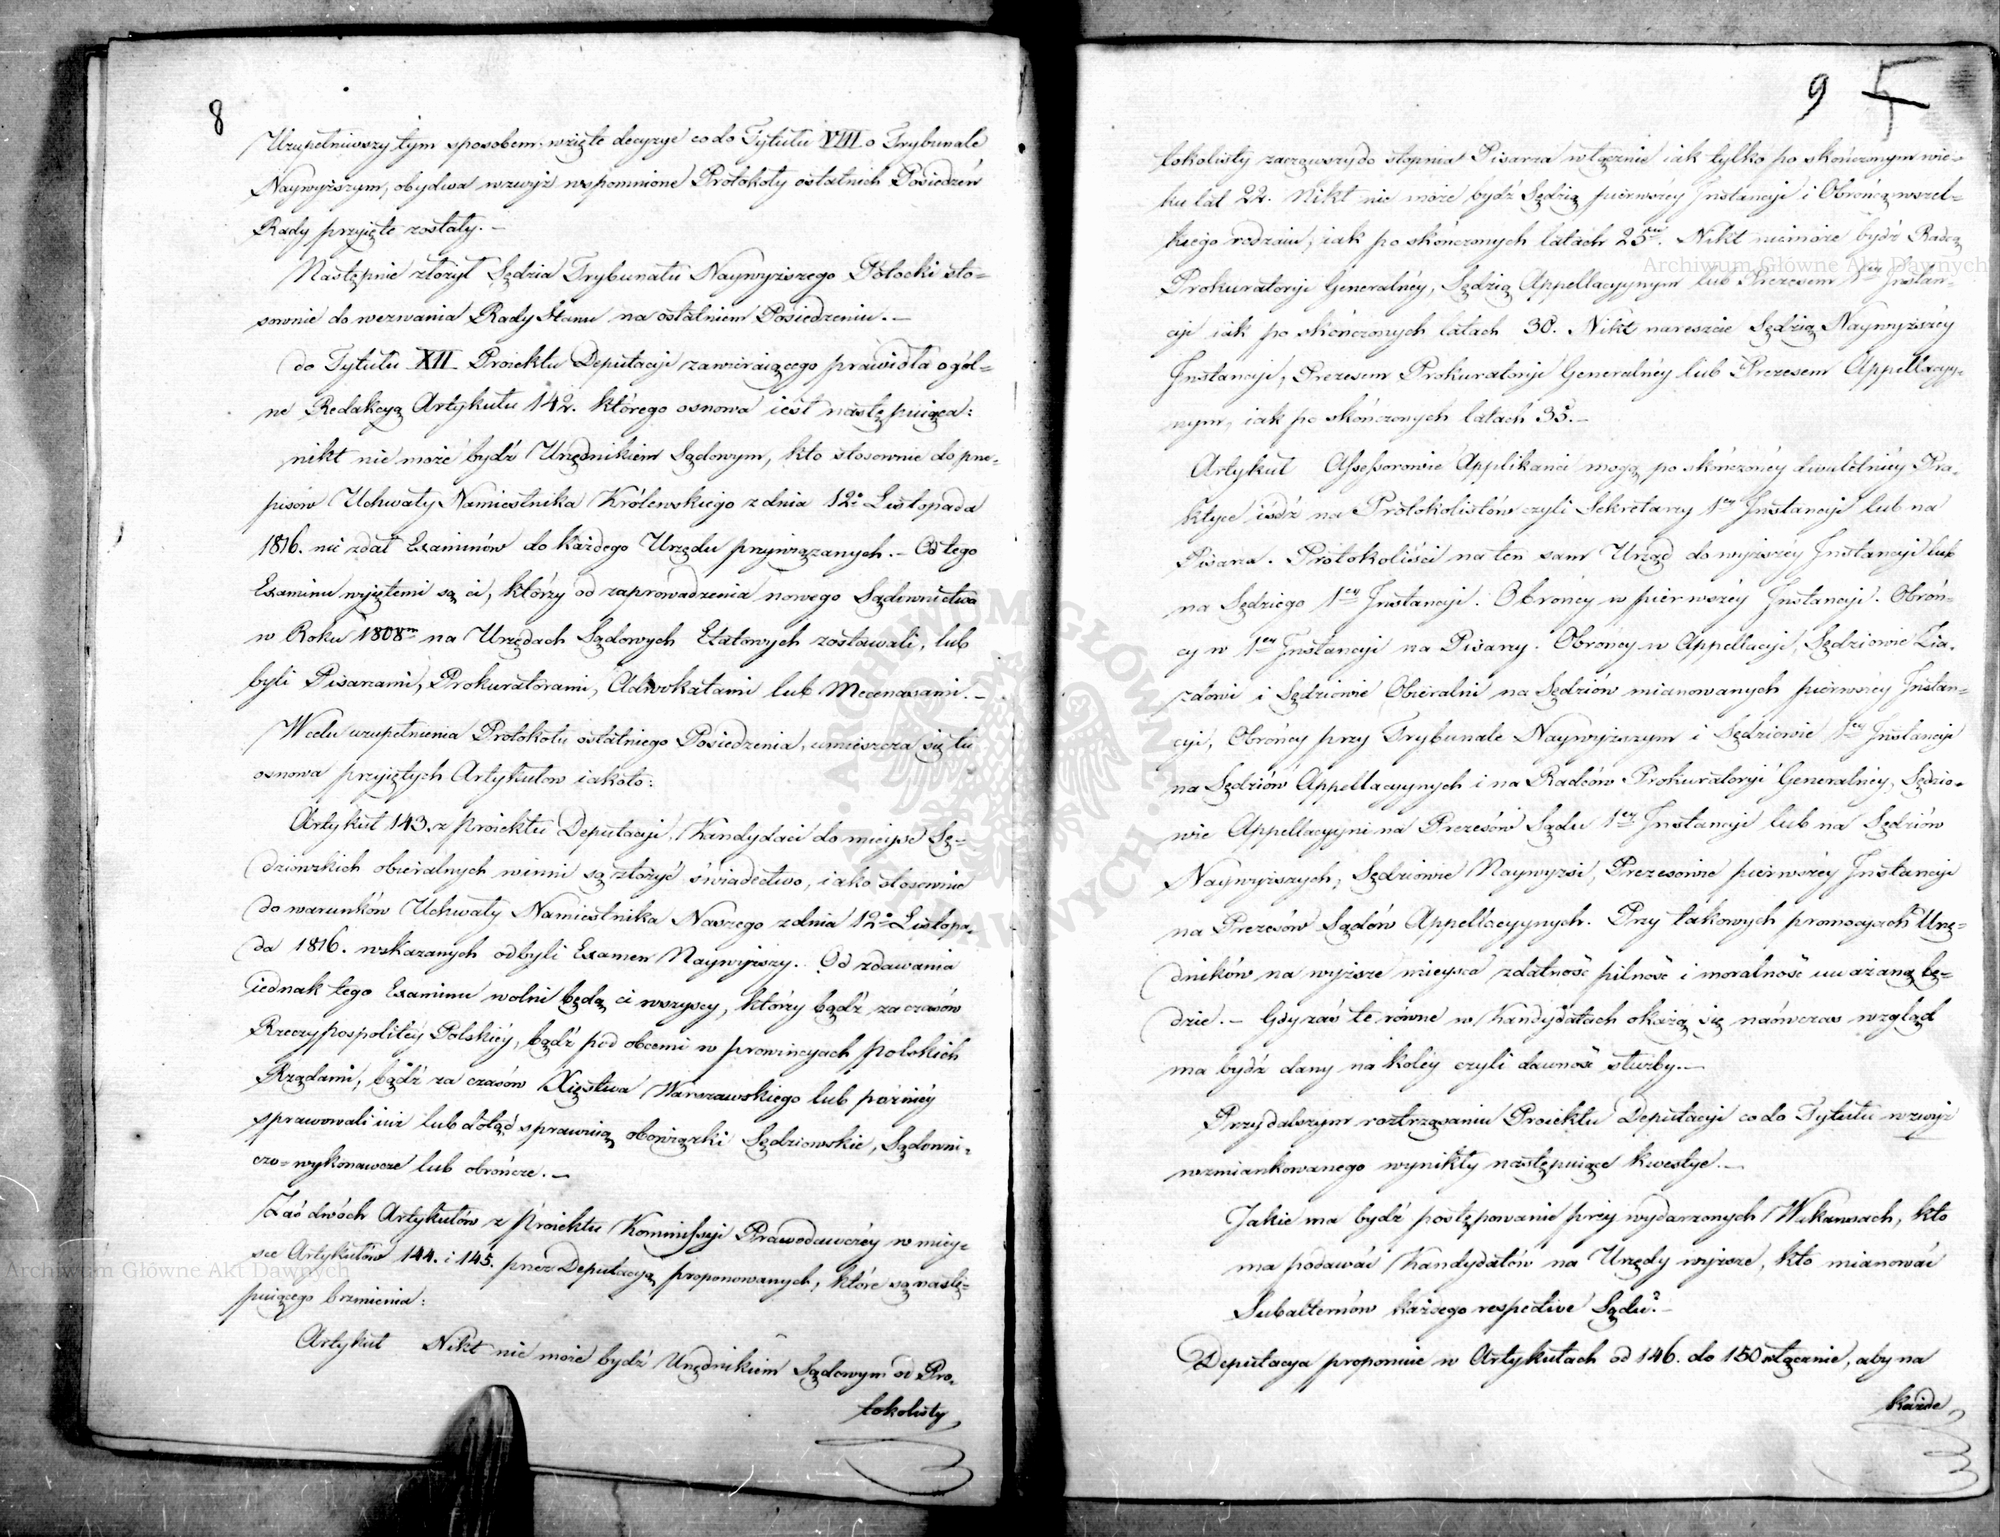 8
Uzupełniwszy tym sposobem wzięte decyzye co do Tytułu VIII o Trybunale
Naywyższym, obydwa wzwyż wspomnione Protokoły ostatnich Posiedzeń
Rady przyięte zostały. –
Następnie złożył Sędzia Trybunału Naywyższego Potocki sto=
sownie do wezwania Rady Stanu na ostatniem Posiedzeniu. –
do Tytułu XII Proiektu Deputacyi zawieraiącego prawidła ogól=
ne Redakcyą Artykułu 142. którego osnowa iest następuiąca:
nikt nie może bydź Urzędnikiem Sądowym, kto stosownie do prze=
pisów Uchwały Namiestnika Królewskiego z dnia 12o Listopada
1816. nie zdał Examinów do każdego Urzędu przywiązanych. – Od tego
Examinu wyiętemi są ci, którzy od zaprowadzenia nowego Sądownictwa
w Roku 1808m na Urzędach Sądowych Etatowych zostawali, lub
byli Pisarzami, Prokuratorami, Adwokatami lub Mecenasami. –
W celu uzupełnienia Protokołu ostatniego Posiedzenia, umieszcza się tu
osnowa przyiętych Artykułow iakoto:
Artykuł 143. z Proiektu Deputacyi, Kandydaci do mieysc Sę=
dziowskich obieralnych winni są złożyć świadectwo, iako stosownie
do warunków Uchwały Namiestnika Naszego z dnia 12o Listopa=
da 1816. wskazanych odbyli Examen Naywyższy. Od zdawania
iednak tego Examinu wolni będą ci wszyscy, którzy bądź za czasów
Rzeczypospolitéy Polskiéy, bądź pod obcemi w prowincyach polskich
Rządami, bądź za czasów Xięstwa Warszawskiego lub późniéy
sprawowali iuż lub dotąd sprawuią obowiązki Sędziowskie, Sądowni=
czo=wykonawcze lub obrończe. –
Zaś dwóch Artykułów z Proiektu Kommissyi Prawodawczéy w miey=
sce Artykułów 144. i 145. przez Deputacyą proponowanych, które są nastę=
puiącego brzmienia:
Artykuł Nikt nie może bydź Urzędnikiem Sądowym od Pro=
tokolisty
9 5
tokolisty zacząwszy do stopnia Pisarza włącznie iak tylko po skończonym wie=
ku lat 22. Nikt nie może bydź Sędzią pierwszéy Instancyi i Obrońcą wszel=
kiego rodzaiu, iak po skończonych latach 25ciu. Nikt nie może bydź Radcą
Prokuratoryi Generalnéy, Sędzią Appellacyynym lub Prezesem 1ey Instan=
cyi iak po skończonych latach 30. Nikt nareszcie Sędzią Naywyższéy
Instancyi, Prezesem Prokuratoryi Generalnéy lub Prezesem Appellacyy=
nym, iak po skończonych latach 35. –
Artykuł Assessorowie Applikanci mogą po skończonéy dwuletniéy Pra=
ktyce iśdź na Protokolistów czyli Sekretarzy 1ey Instancyi lub na
Pisarza. Protokoliści na ten sam Urząd do wyższey Instancyi lub
na Sędziego 1ey Instancyi. Obrońcy w pierwszéy Instancyi. Obroń=
cy w 1ey Instancyi na Pisarzy. Obrońcy w Appellacyi, Sędziowie Zia=
zdowi i Sędziowie Obieralni na Sędziów mianowanych pierwszéy Instan=
cyi, Obrońcy przy Trybunale Naywyższym i Sędziowie 1ey Instancyi
na Sędziów Appellacyynych i na Radców Prokuratoryi Generalnéy, Sędzio=
wie Appellacyyni na Prezesów Sądu 1ey Instancyi lub na Sędziów
Naywyższych, Sędziowie Naywyżsi, Prezesowie pierwszéy Instancyi
na Prezesów Sądów Appellacyynych. Przy takowych promocyach Urzę=
dników na wyższe mieysca zdatność pilność i moralność uważaną bę=
dzie. – Gdy zaś te równe w Kandydatach okażą się naówczas wzgląd
ma bydź dany na koléy czyli dawność służby. –
Przy dalszym roztrząsaniu Proiektu Deputacyi co do Tytułu wzwyż
wzmiankowanego wynikły następuiące kwestye. –
Jakie ma bydź postępowanie przy wydarzonych Wakansach, kto
ma podawać Kandydatów na Urzędy wyższe, kto mianować
Subalternów każdego respective Sądu? –
Deputacya proponuie w Artykułach od 146. do 150 włącznie, aby na
każde
Archiwum Główne Akt Dawnych
Archiwum Główne Akt Dawnych
ARCHIWUM GŁÓWNE AKT DAWNYCH